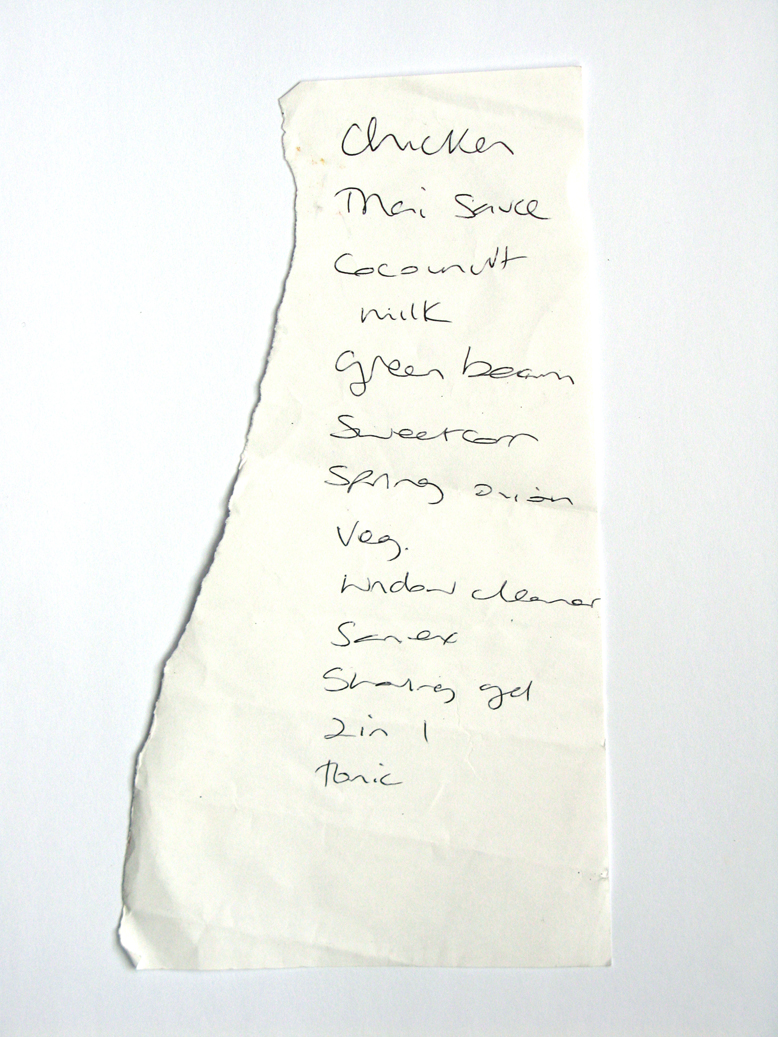 Chicken
Thai Sauce
Cocounutt
milk
Green beans
Sweetcorn
Spring onion
Veg.
Window cleaner
Sanex
Shaving gel
2 in 1
Tonic